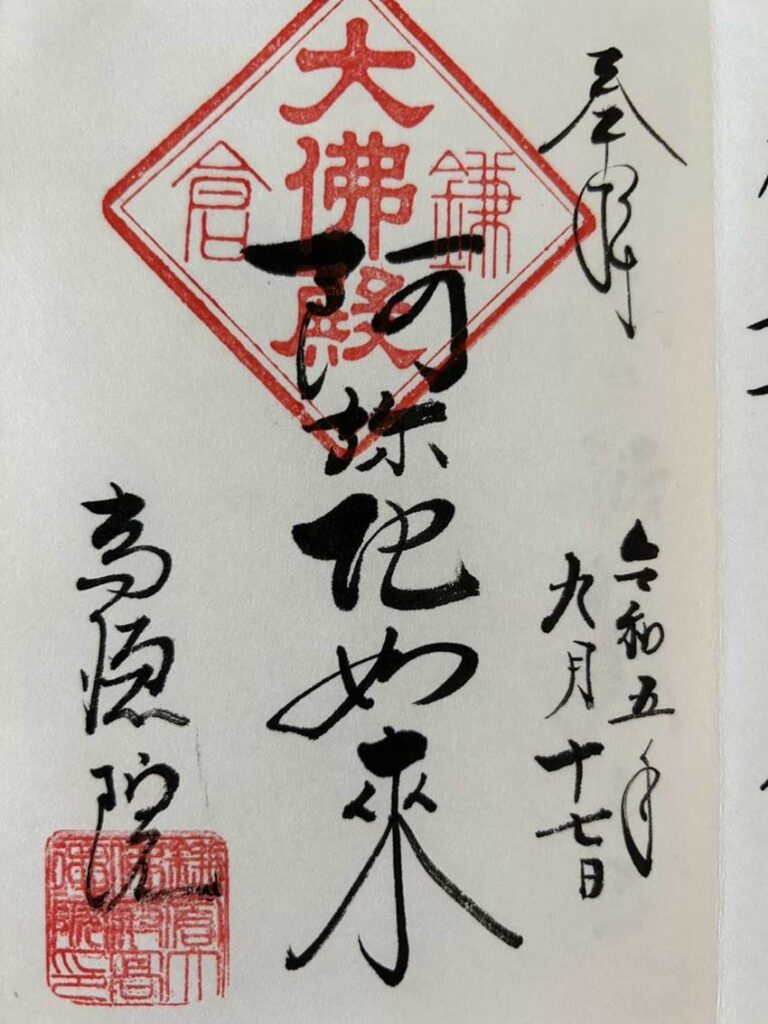 奉拝
令和五年
九月十七日
鎌倉
大佛殿
阿弥陀如來
高徳院